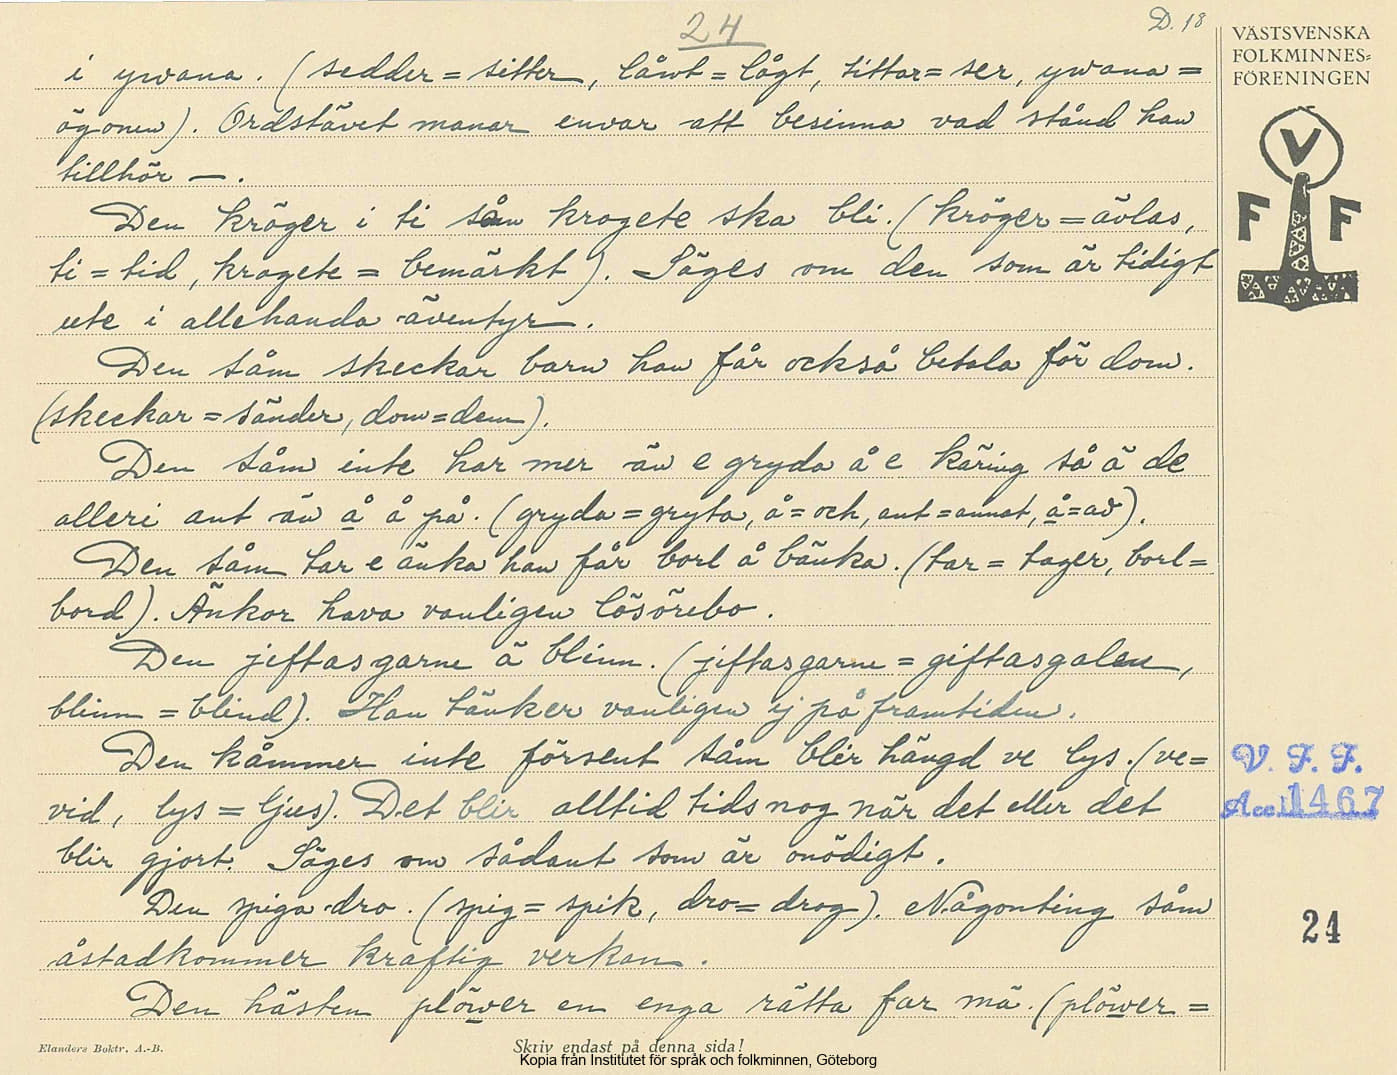 24
D. 18
i ywana. (sedder = sitter, låwt = lågt, tittar = ser, ywana =
ögonen). Ordstävet manar envar att besinna vad stånd han
tillhör —.
Den kröger i ti såm krogete ska bli. (kröger = ävlas,
ti = tid, krogete = bemärkt). Säges om den som är tidigt
ute i allehanda äventyr.
Den såm skeckar barn han får också betala för dom.
(skeckar = sänder, dom = dem).
Den såm inte har mer än e gryda å e käring så ä de
alleri ant än å å på. (gryda = gryta, å = och, ant = annat, å = av).
Den såm tar e änka han får borl å bänka. (tar = tager, borl =
bord). Änkor hava vanligen lösörebo.
Den jiftasgarne ä blinn. (jiftasgarne = giftasgalen,
blinn = blind). Han tänker vanligen ej på framtiden.
Den kåmmer inte försent såm blir hängd ve lys. (ve =
vid, lys = ljus). Det blir alltid tids nog när det eller det
blir gjort. Säges om sådant som är onödigt.
Den spiga dro. (spig = spik, dro = drog). Någonting såm
åstadkommer kraftig verkan.
Den hästen plöwer en enga rätta far mä. (plöwer =
Elanders Boktr. A.-B.
Skriv endast på denna sida!
Kopia från Institutet för språk och folkminnen, Göteborg
VÄSTSVENSKA
FOLKMINNES-
FÖRENINGEN
V
F F
V. F. F.
Acc. 1467
24